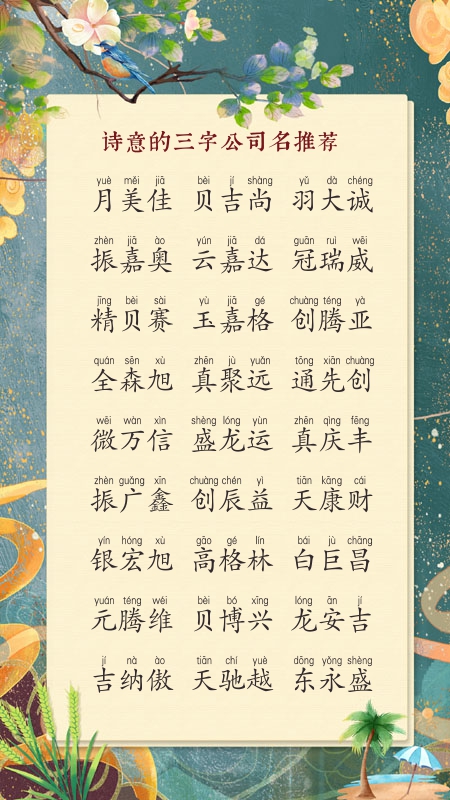 诗意的三字公司名推荐
yuè měi jiā bèi jí shàng yǔ dà chéng
月美佳 贝吉尚 羽大诚
zhèn jiā ào yún jiā dá guān ruì wēi
振嘉奥 云嘉达 冠瑞威
jīng bèi sài yù jiā gé chuàng téng yà
精贝赛 玉嘉格 创腾亚
quán sēn xù zhēn jù yuǎn tōng xiān chuàng
全森旭 真聚远 通先创
wēi wàn xìn shèng lóng yùn zhēn qìng fēng
微万信 盛龙运 真庆丰
zhèn guǎng xīn chuàng chén yì tiān kāng cái
振广鑫 创辰益 天康财
yín hóng xù gāo gé lín bái jù chāng
银宏旭 高格林 白巨昌
yuán téng wéi bèi bó xīng lóng ān jí
元腾维 贝博兴 龙安吉
jí nà ào tiān chí yuè dōng yǒng shèng
吉纳傲 天驰越 东永盛